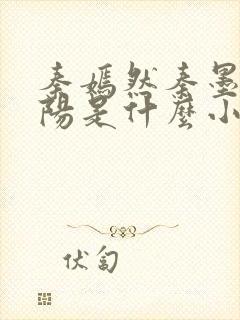 秦嫣然秦墨
陽是什麼小
伏匐